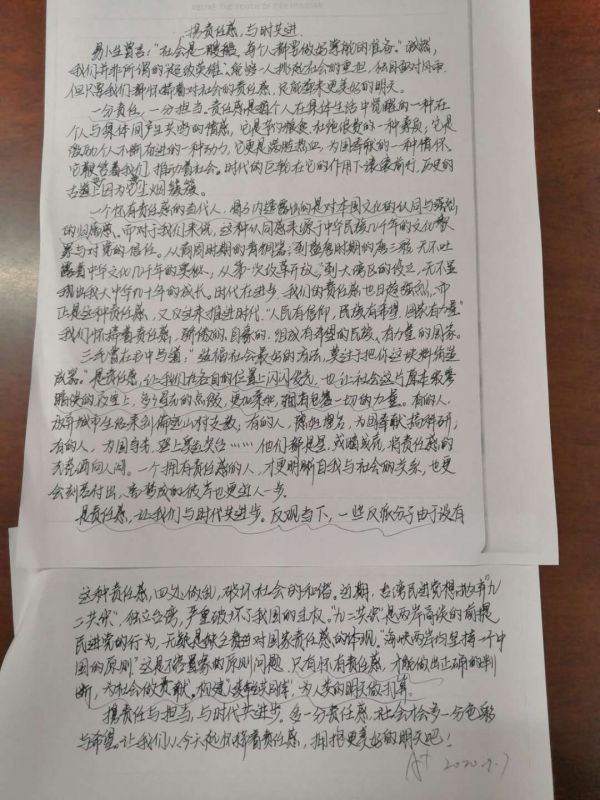 携责任感,与时共进
易卜生曾言:"社会是一艘船,每个人都要做好掌舵的准备。"诚然,
我们并非所谓的超级英雄,能够一人挑起社会的重担,独自面对风雨
但只要我们都怀揣着对社会的责任感,定能奔来更美好的明天。
一分责任,一分担当。责任感是每个人在集体生活中觉醒的一种在
个人与集体间产生共鸣的情感,它是节约粮食 杜绝浪费的一种素质;它是
激励个人不断奋进的一种动力,它更是洒热血,为国奉献的一种情怀。
它鞭笞着我们,推动着社会。时代的巨轮在它的作用下滚滚前行,历史的
古道上因为它生烟袅袅。
一个怀有责任感的当代人,由内透露出的是对本国文化的认同与强烈
的归属感。而对于我们来说,这种认同感来源于中华民族几千年的文化积
累与对党的信任。从商周时期的青铜器,到盛唐时期的唐三彩,无不吐
露着中华文化几千年的实力,从第一次改革开放,到大湾区的设立,无不显
现出我大中华几十年的成长。时代在进步,我们的责任感也日趋强烈,而
正是这种责任感,又反过来推进时代。"人民有信仰,民族有希望,国家有力量"
我们怀揣着责任感,骄傲的、自豪的,组成有希望的民族、有力量的国家。
三毛曾在书中写道:"造福社会最好的方法,莫过于把你这块料铸造
成器。"是责任感,让我们在各自的位置上闪闪发光,也让社会这片原本寂寥
暗淡的夜空上,多了璀璨的点缀,更加柔和,拥有包容一切的力量。有的人,
放弃城市生活来到偏远山村支教,有的人,隐姓埋名,为国奉献搞科研,
有的人,为国争光,登上奥运奖台……他们都是星,或暗或亮,将责任感的
光亮洒向人间。一个拥有责任感的人,才更明晰自我与社会的关系,也更
会刻苦付出,离梦成的彼岸也更近一步。
是责任感,让我们与时代共进步。反观当下,一些反派分子由于没有
这种责任感,四处作乱,破坏社会的和谐。近期,台湾民进党想抛弃"九
二共识",独立台湾,严重破坏了我国的主权。"九二共识"是两岸商谈的前提
民进党的行为,无疑是缺乏对国家责任感的体现。"海峡两岸均坚持一个中
国的原则"这是不容置喙的原则问题,只有怀有责任感,才能做出正确的判
断,为社会做贡献,构建"命运共同体",为人类的明天做打算。
携责任与担当,与时代共进步。多一分责任感,社会才会多一分色彩
与希望。让我们从今天起怀揣着责任感,拥抱更美好的明天吧!
2020.9.7